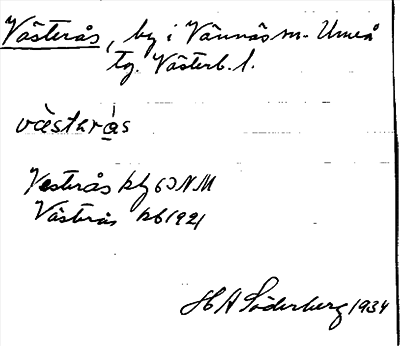 Västerås, by i Vännäs m. Umeå
tg. Västerb. l.
västerås
Vesterås
Västerås kb 1921
H A Söderberg 1934